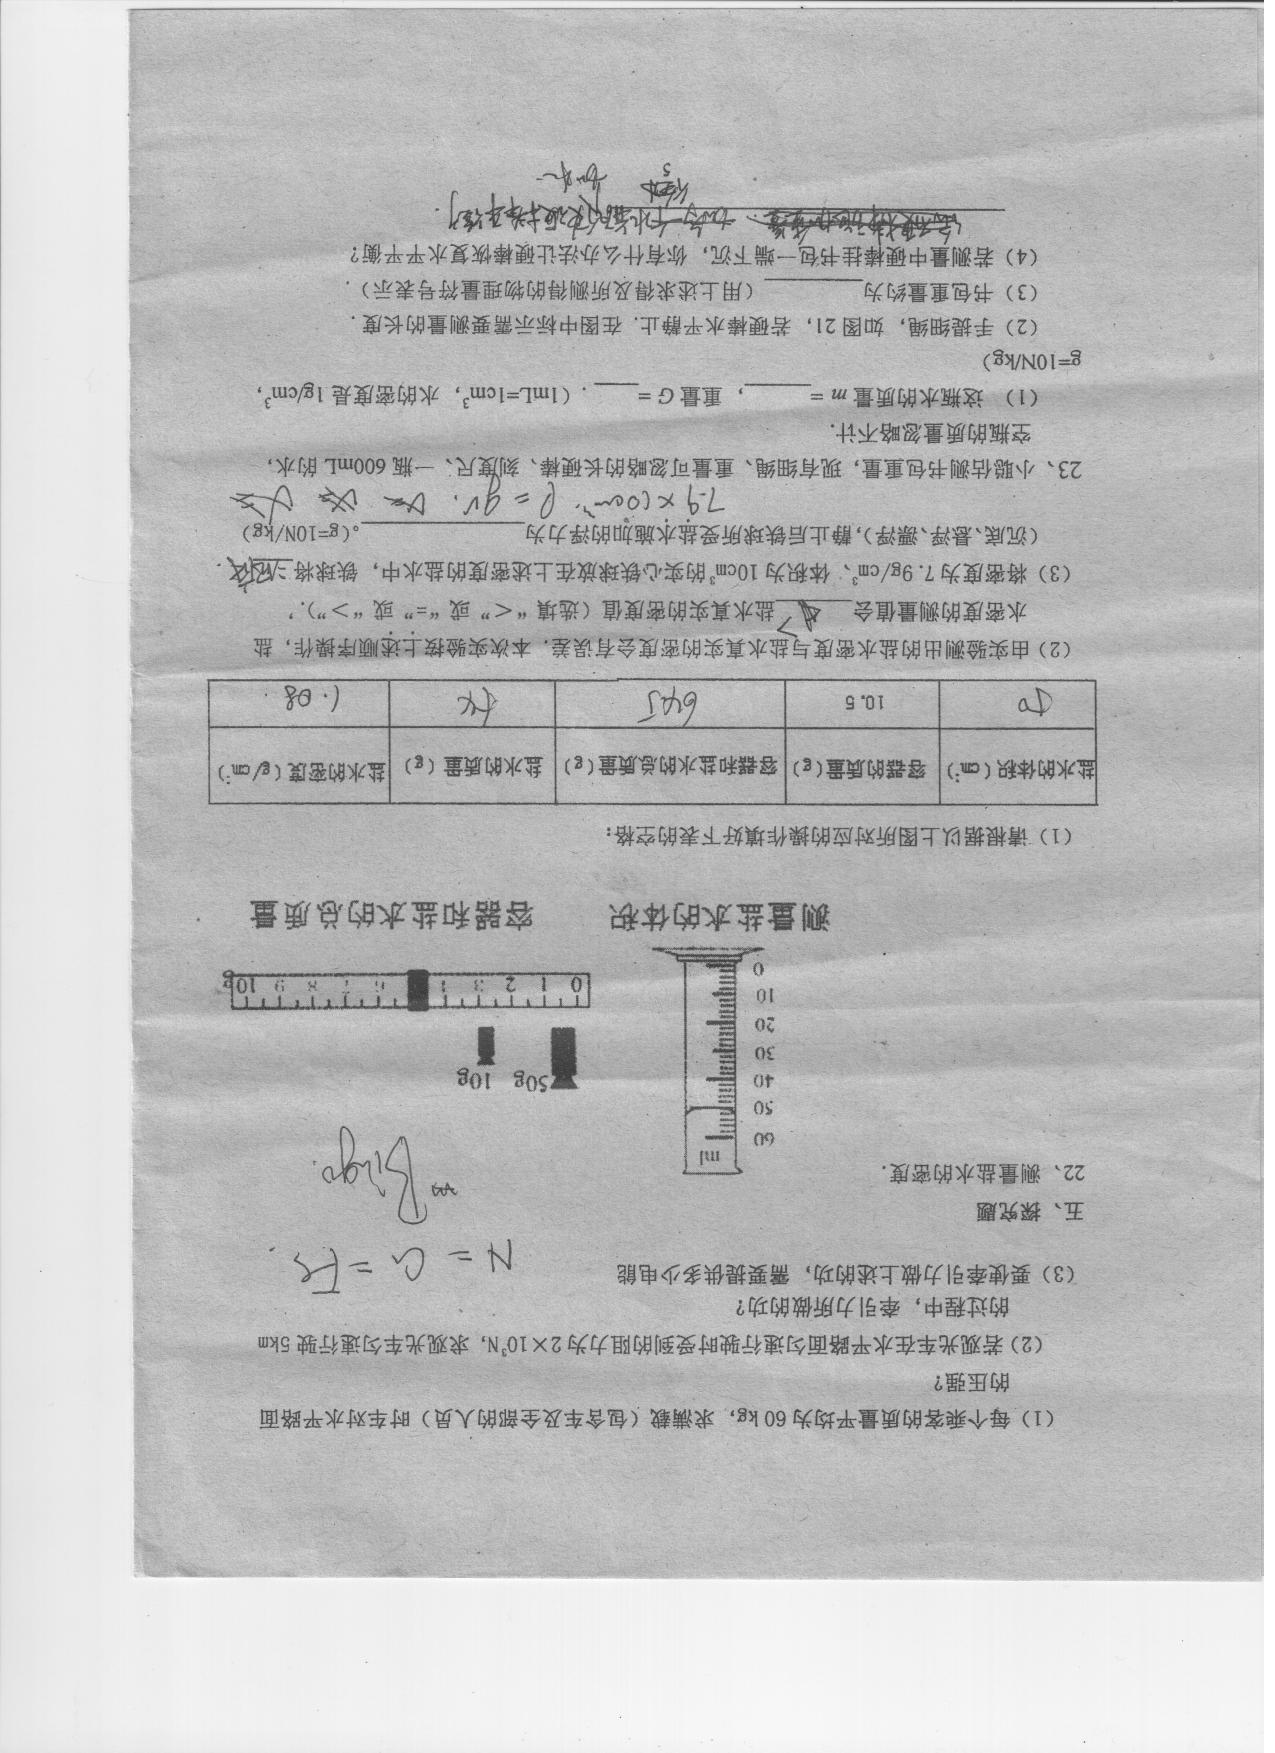 （1）每个乘客的质量平均为 60 kg，求满载（包含车及全部的人员）时车对水平路面
的压强?
（2）若观光车在水平路面匀速行驶时受到的阻力为 2×10³N，求观光车匀速行驶 5km
的过程中，牵引力所做的功?
（3）要使牵引力做上述的功，需要提供多少电能
N = G = Fs.
五、探究题
22、测量盐水的密度.
Bingo
ml
60
50
40
30
20
10
0
50g 10g
0 1 2 3 4 6 7 8 9 10 g
测量盐水的体积 容器和盐水的总质量
（1）请根据以上图所对应的操作填好下表的空格:
盐水的体积（cm³） 容器的质量（g） 容器和盐水的总质量（g） 盐水的质量（g） 盐水的密度（g/cm³）
50 10.5 64.5 54 1.08
（2）由实验测出的盐水密度与盐水真实的密度会有误差. 本次实验按上述顺序操作，盐
水密度的测量值会 > 盐水真实的密度值（选填 “<” 或 “=” 或 “>”）.
（3）将密度为 7.9g/cm³、体积为 10cm³的实心铁球放在上述密度的盐水中，铁球将 沉底.
（沉底、悬浮、漂浮），静止后铁球所受盐水施加的浮力为 。（g=10N/kg）
7.9 × 10cm³. ρ = gv.
23、小聪估测书包重量，现有细绳、重量可忽略的长硬棒、刻度尺、一瓶 600mL 的水，
空瓶的质量忽略不计.
（1） 这瓶水的质量 m = ， 重量 G = .（1mL=1cm³，水的密度是 1g/cm³，
g=10N/kg）
（2）手提细绳，如图 21，若硬棒水平静止. 在图中标示需要测量的长度.
（3）书包重量约为 （用上述求得及所测得的物理量符号表示）.
（4）若测量中硬棒挂书包一端下沉，你有什么办法让硬棒恢复水平平衡?